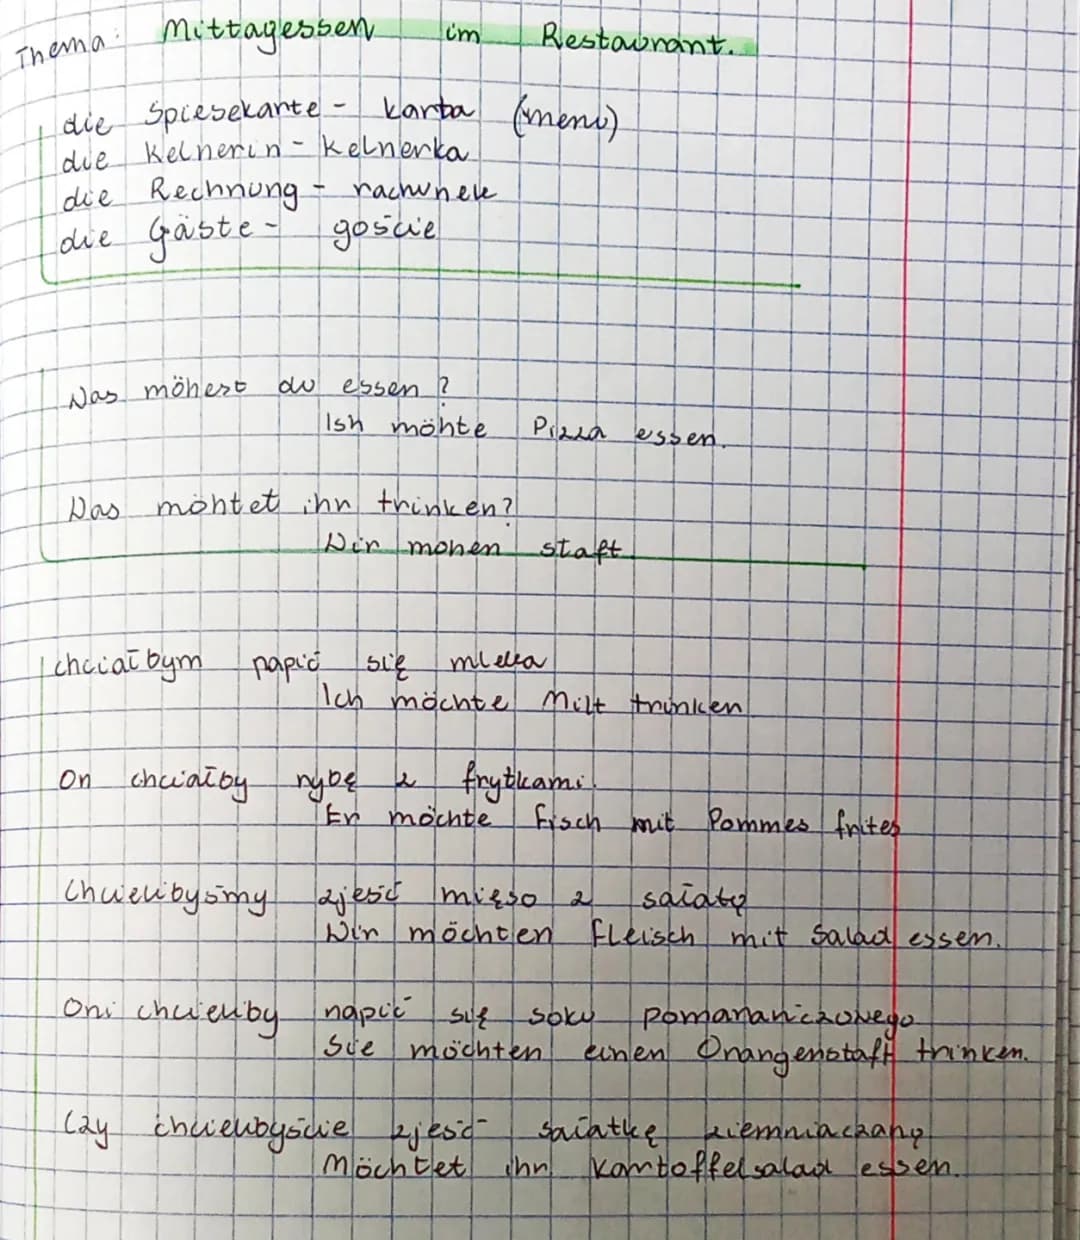 Thema: Mittagessen im Restaurant.
die Spiesekarte - karta (menu)
die Kelnerin - kelnerka
die Rechnung - rachunek
die Gäste - goście
Was möhest du essen?
Ish möhte Pizza essen.
Was möhtet ihr trinken?
Wir mohen staft
chciałbym napić się mleka
Ich möchte Milt trinken
On chciałby rybę z frytkami.
Er möchte Fisch mit Pommes frites
Chcielibyśmy zjeść mięso z sałatą
Wir möchten Fleisch mit Salad essen.
Oni chcieliby napić się soku pomarańiczowego
Sie möchten einen Orangenstaft trinken.
Czy chcielibyście zjeść sałatkę ziemniaczaną
Möchtet ihr Kartoffelsalad essen.